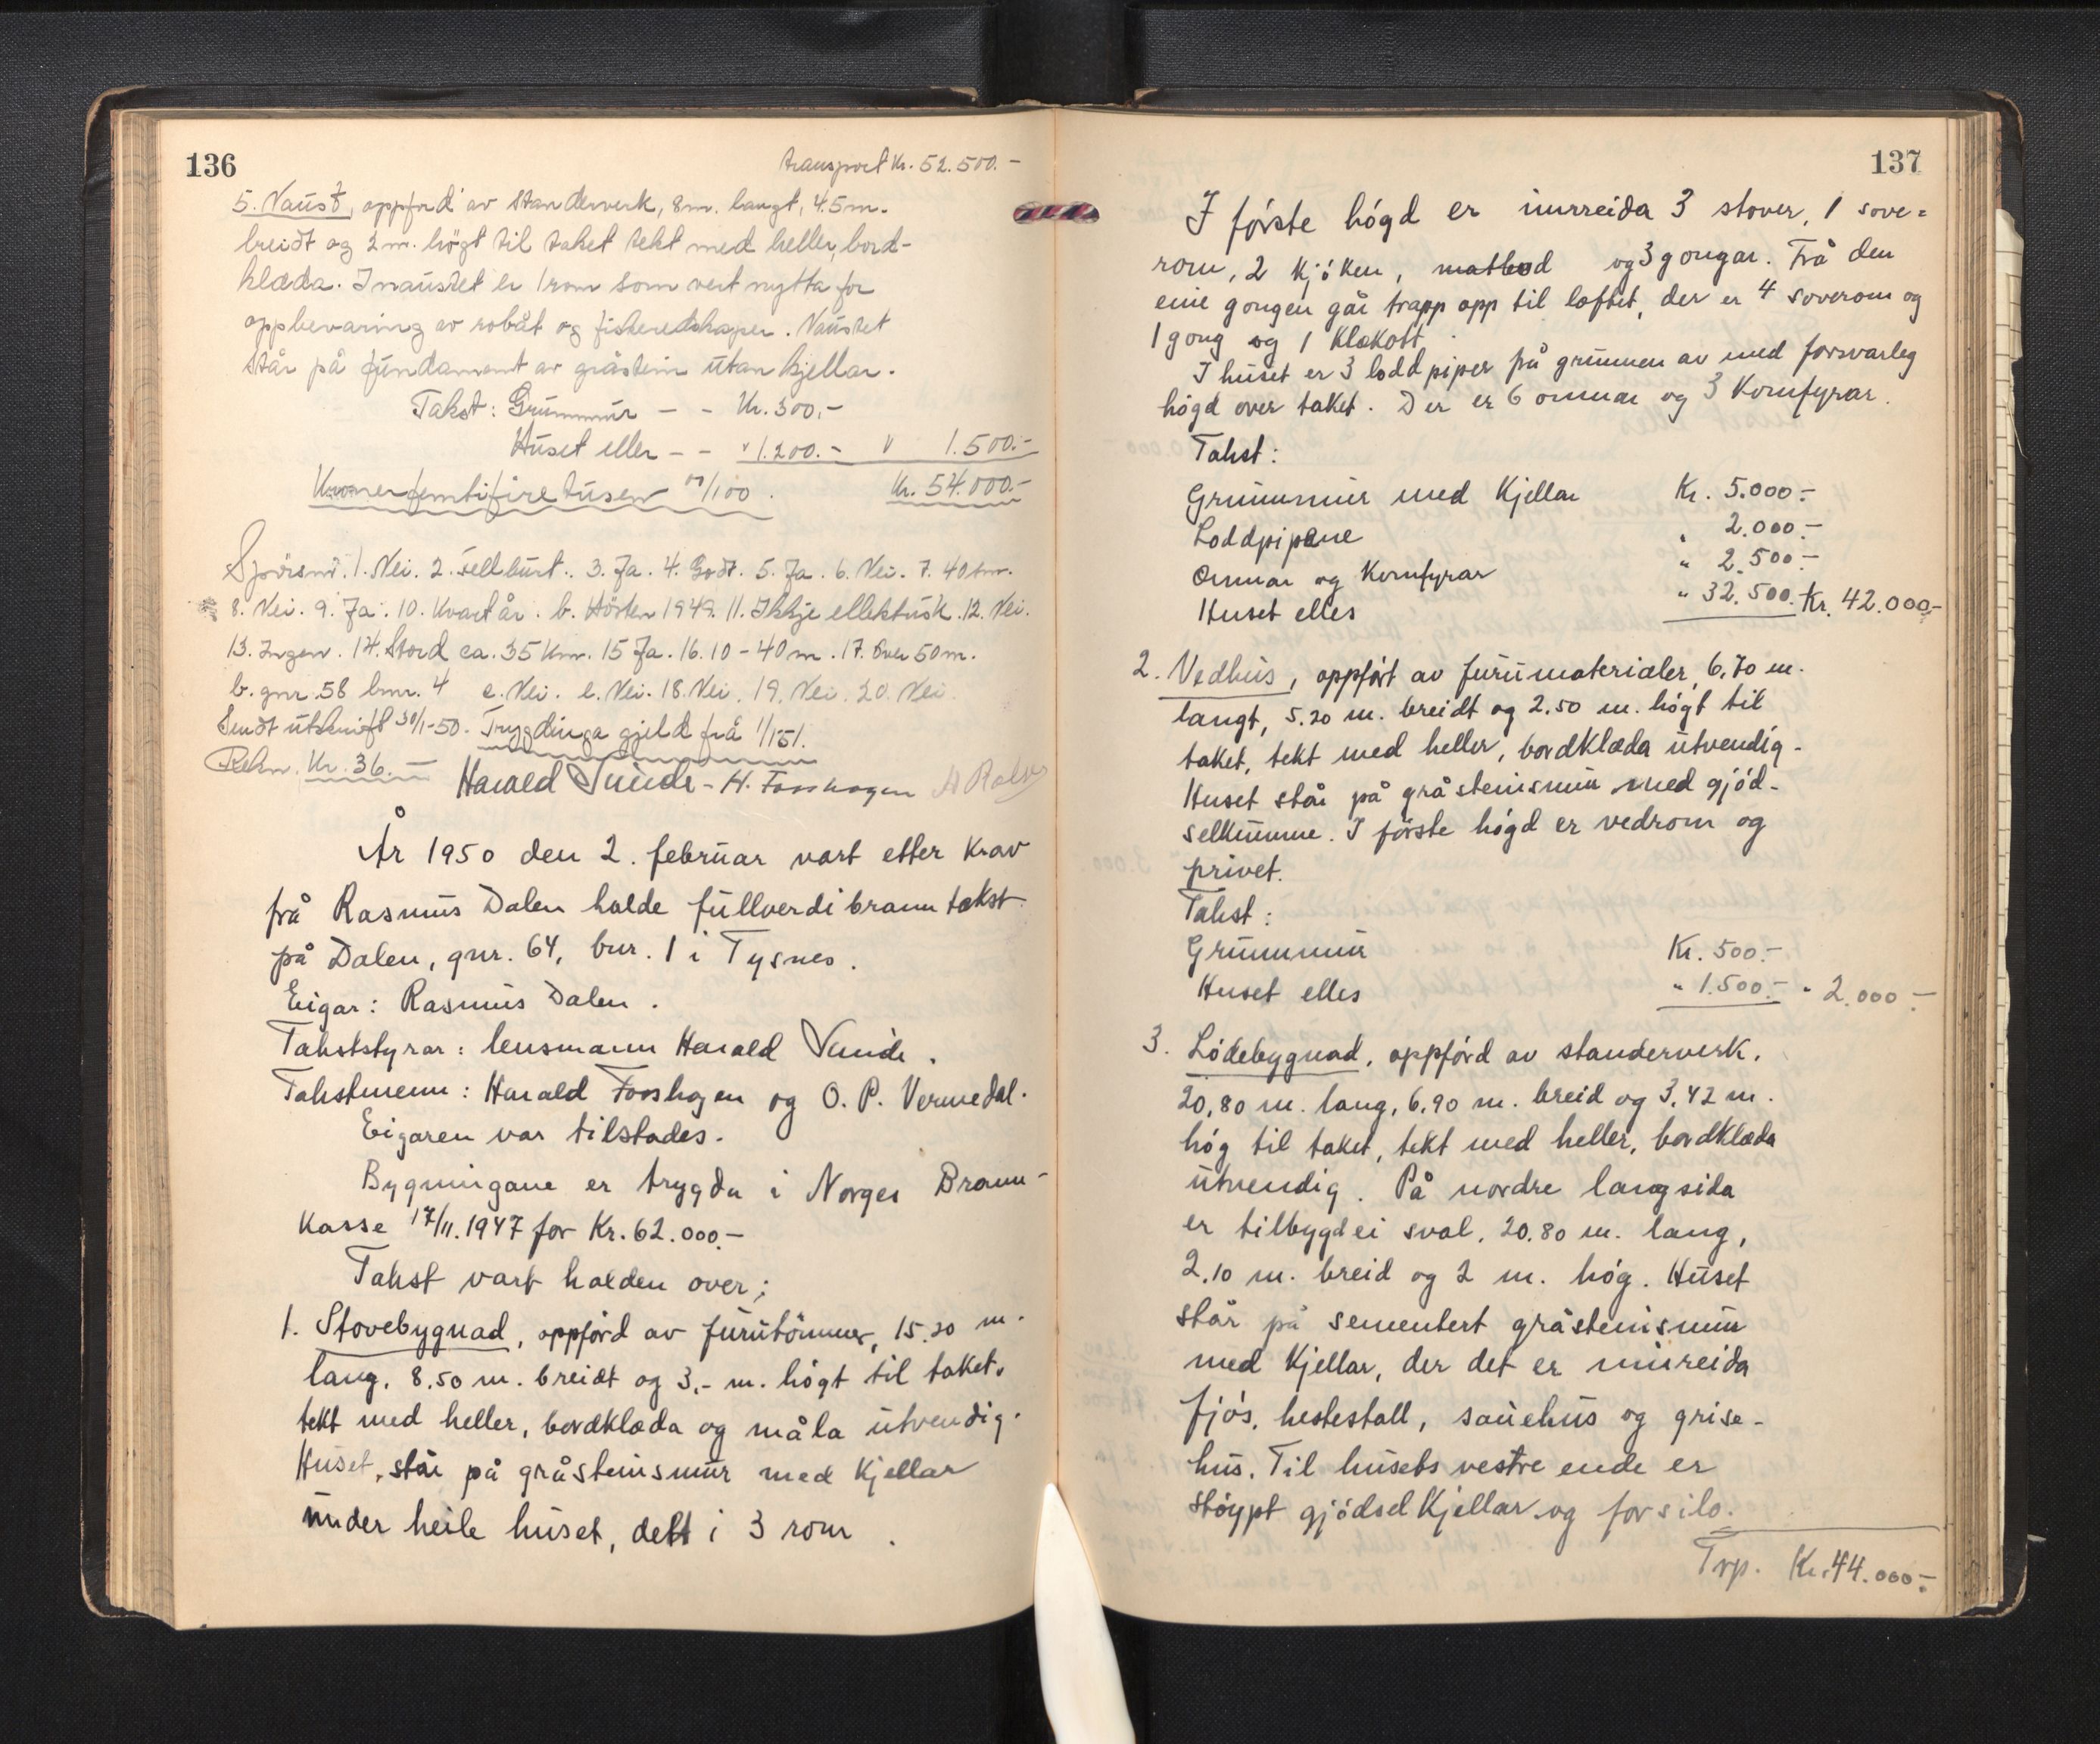 136
transport Kr. 52.500.-
5. Naust, oppförd av standerverk, 8m. langt, 4.5m.
breidt og 2 m. högt til taket tekt med heller, bord-
klæda. I naustet er 1 rom som vert nytta for
oppbevaring av robåt og fiskeredskaper. Naustet
står på fundament av gråstein utan kjellar.
Takst: Grunnmur - - Kr. 300.-
Huset eller - - " 1.200.- " 1.500.-
Kronerfemtifiretusen 00/100. Kr. 54.000.-
Spörsm. 1. Nei. 2. sellburt. 3. Ja. 4. Godt. 5. Ja. 6. Nei. 7. 40 m.
8. Nei. 9. Ja. 10. Kvart år. b. Hösten 1949. 11. Ikkje ellektrisk. 12. Nei.
13. Ingen. 14. Stord ca. 35 km. 15 Ja. 16. 10-40 m. 17. Over 50 m.
b. gnr. 58 bnr. 4 c. Nei. e. Nei. 18. Nei. 19. Nei. 20. Nei.
Sendt utskrift 30/1-50. Trygdinga gjeld frå 1/151.
Rekn. Kr. 36.-
Harald Sunde - H. Fosshagen
År 1950 den 2. februar vart etter krav
frå Rasmus Dalen halde fullverdibranntakst
på Dalen, gnr. 64, bnr. 1 i Tysnes.
Eigar: Rasmus Dalen.
Takststyrar: lensmann Harald Sunde.
Takstmenn: Harald Fosshagen og O. P. Vermedal.
Eigaren var tilstades.
Bygningane er trygda i Norges Brann-
kasse 17/11.1947 for Kr. 62.000.-
Takst vart halden over;
1. Stovebygnad, oppförd av furutömmer, 15.20 m.
lang, 8.50 m. breidt og 3,- m. högt til taket,
tekt med heller, bordklæda og måla utvendig.
Huset, står på gråsteinsmur med kjellar
under heile huset, delt i 3 rom.
137
I förste högd er innreida 3 stover, 1 sove=
rom, 2 kjöken, matbod og 3 gongar. Frå den
eine gongen går trapp opp til loftet, der er 4 soverom og
1 gong og 1 klækott.
I huset er 3 loddpiper frå grunnen av med forsvarleg
högd over taket. Der er 6 omnar og 3 komfyrar.
Takst:
Grunnmur med kjellar Kr. 5.000.-
Loddpipene " 2.000.-
Omnar og komfyrar " 2.500.-
Huset elles " 32.500. Kr. 42.000.-
2. Vedhus, oppfört av furumaterialer, 6,70 m.
langt, 5.20 m. breidt og 2.50 m. högt til
taket, tekt med heller, bordklæda utvendig.
Huset står på gråsteinsmur med gjöd-
selkumme. I förste högd er vedrom og
privet.
Takst:
Grunnmur Kr. 500.-
Huset elles " 1.500.- " 2.000-
3. Lödebygnad, oppförd av standerverk,
20,80 m. lang, 6,90 m. breid og 3,42 m.
hög til taket, tekt med heller, bordklæda
utvendig. På nordre langsida
er tilbygd ei sval, 20.80 m. lang,
2.10 m. breid og 2 m. hög. Huset
står på sementert gråsteinsmur
med kjellar, der det er innreida
fjös, hestestall, sauehus og grise-
hus. Til husets vestre ende er
stöypt gjödselkjellar og forsilo.
Trp. Kr. 44.000.-